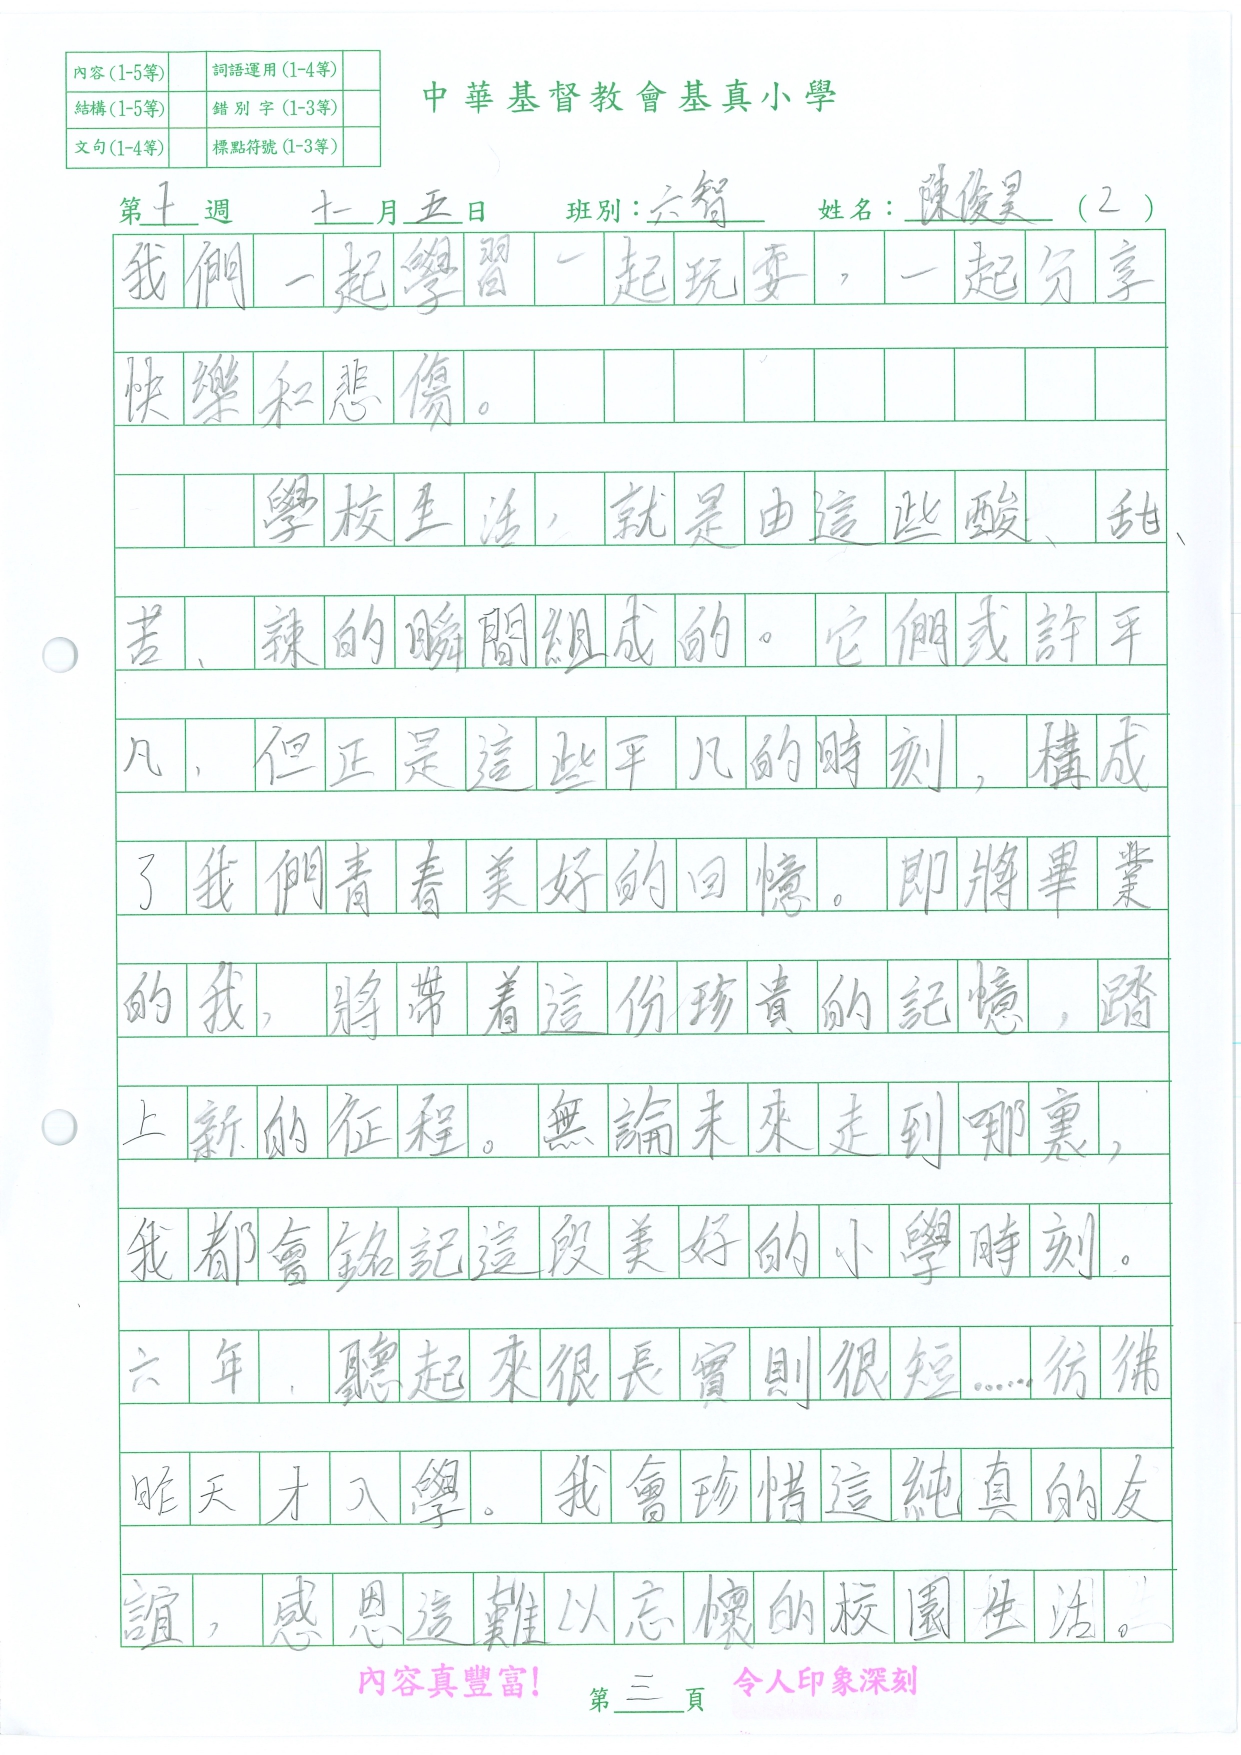 內容(1-5等) 詞語運用(1-4等)
結構(1-5等) 錯別字(1-3等)
文句(1-4等) 標點符號(1-3等)
中華基督教會基真小學
第十週 十一月五日 班別：六智 姓名：陳俊昊 (2)
我們一起學習一起玩耍，一起分享
快樂和悲傷。
學校生活，就是由這些酸、甜、
苦、辣的瞬間組成的。它們或許平
凡，但正是這些平凡的時刻，構成
了我們青春美好的回憶。即將畢業
的我，將帶着這份珍貴的記憶，踏
上新的征程。無論未來走到哪裏，
我都會銘記這段美好的小學時刻。
六年，聽起來很長實則很短……彷彿
昨天才入學。我會珍惜這純真的友
誼，感恩這難以忘懷的校園生活。
內容真豐富！ 第三頁 令人印象深刻